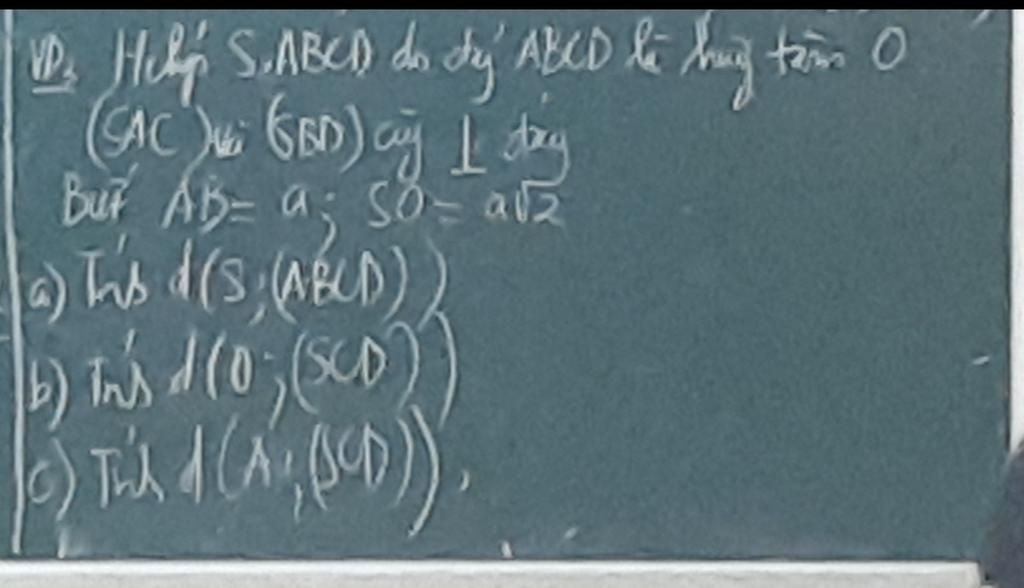 VD: H chóp S.ABCD có đáy ABCD là vuông tâm O
(SAC) và (SBD) cùng ⊥ đáy
Biết AB = a; SO = a√2
a) Tính d(S;(ABCD))
b) Tính d(O;(SCD))
c) Tính d(A;(SCD)).